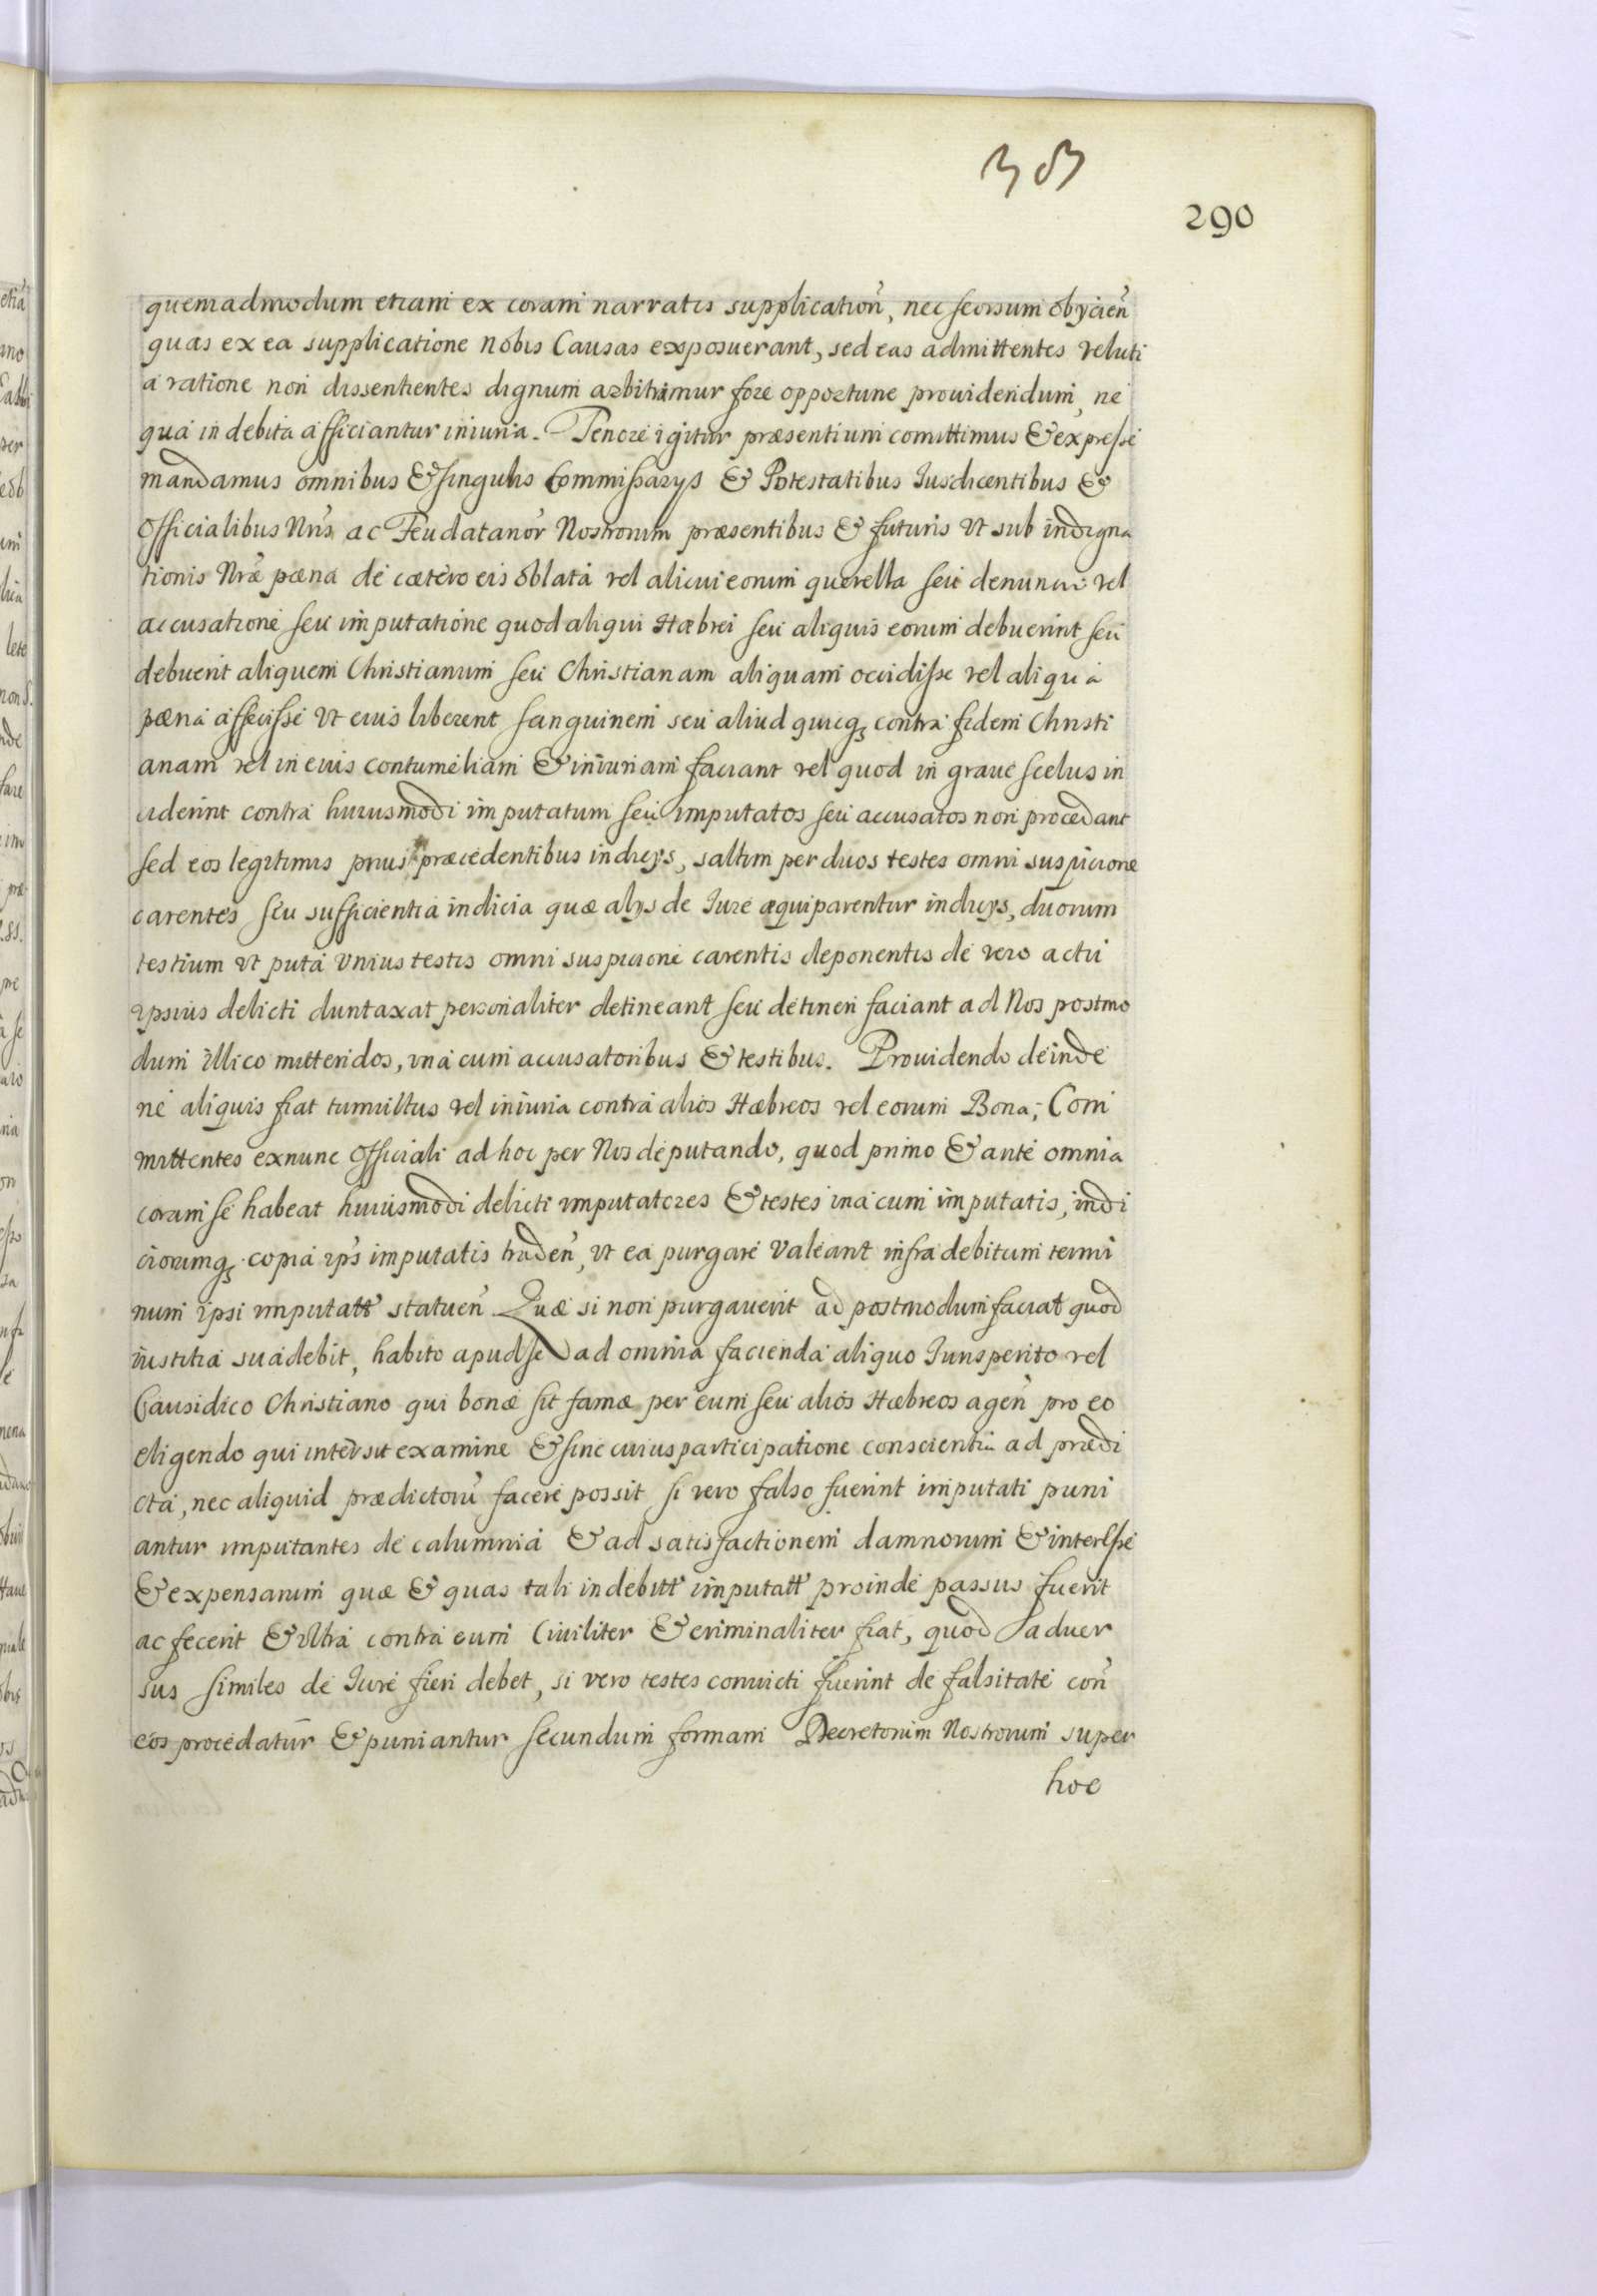 290
quemadmodum etiam ex coram narratis supplication̄, nec seorsum obijcien̄
quas ex ea supplicatione nobis Causas exposuerant, sed eas admittentes veluti
à ratione non dissentientes dignum arbitramur fore opportune prouidendum, ne
qua indebita afficiantur iniuria. Tenore igitur præsentium comittimus & expresse
mandamus omnibus & singulis Commissarijs & Potestatibus Iusdicentibus &
Officialibus Nrīs ac Feudatarior̄ Nostrorum præsentibus & futuris vt sub indigna
tionis Nrǣ pœna de cætero eis oblata vel alicui eorum querella seu denuncia vel
accusatione seu imputatione quod aliqui Hæbrei seu aliquis eorum debuerint seu
debuerit aliquem Christianum seu Christianam aliquam occidisse vel aliqua
pœna affecisse vt eius liberent sanguinem seu aliud quicq; contra fidem Christi
anam vel in eius contumeliam & iniuriam faciant vel quod in graue scelus in
ciderint contra huiusmodi imputatum seu imputatos seu accusatos non procedant
sed eos legitimis prius præcedentibus indicijs, saltim per duos testes omni suspicione
carentes seu sufficientia indicia quæ alijs de Iure æquiparentur indicijs, duorum
testium vt puta vnius testis omni suspicione carentis deponentis de vero actu
ipsius delicti duntaxat personaliter detineant seu detineri faciant ad Nos postmo
dum illico mittendos, vna cum accusatoribus & testibus. Prouidendo deinde
ne aliquis fiat tumultus vel iniuria contra alios Hæbreos vel eorum Bona; Com
mittentes exnunc Officiali ad hoc per Nos deputando, quod primo & ante omnia
coram se habeat huiusmodi delicti imputatores & testes ina cum imputatis, indi
ciorumq; copia ip̄s imputatis traden̄, vt ea purgare valeant infra debitum termi
num ipsi imputatt̄ statuen̄ Quæ si non purgauerit ad postmodum faciat quod
iustitia suadebit, habito apud se ad omnia facienda aliquo Iurisperito vel
Causidico Christiano qui bonæ sit famæ per eum seu alios Hæbreos agen̄ pro eo
eligendo qui intersit examine & sine cuius participatione conscientia ad prædi
cta, nec aliquid prædictorū facere possit si vero falso fuerint imputati puni
antur imputantes de calumnia & ad satisfactionem damnorum & interesse
& expensarum quæ & quas tali indebitt̄ imputatt̄ proinde passus fuerit
ac fecerit & vltra contra eum Ciuiliter & criminaliter fiat, quod aduer
sus similes de Iure fieri debet, si vero testes conuicti fuerint de falsitate con̄
eos procedatur & puniantur secundum formam Decretorum Nostrorum super
hoc